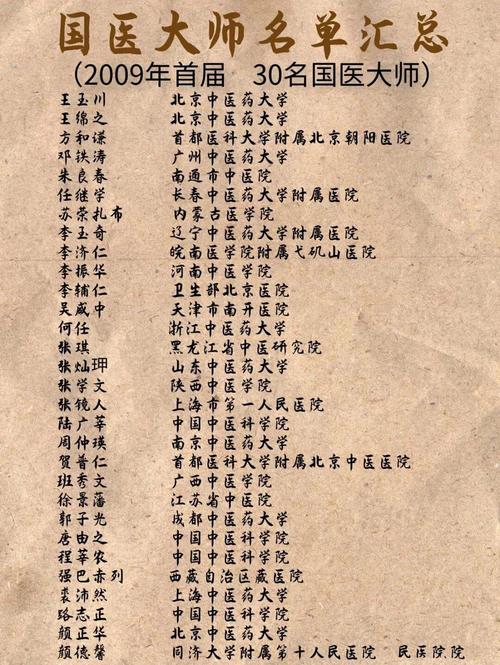 国医大师名单汇总
（2009年首届 30名国医大师）
王玉川 北京中医药大学
王绵之 北京中医药大学
方和谦 首都医科大学附属北京朝阳医院
邓铁涛 广州中医药大学
朱良春 南通市中医院
任继学 长春中医药大学附属医院
苏荣扎布 内蒙古医学院
李玉奇 辽宁中医药大学附属医院
李济仁 皖南医学院附属弋矶山医院
李振华 河南中医学院
李辅仁 卫生部北京医院
吴咸中 天津市南开医院
何任 浙江中医药大学
张琪 黑龙江省中医研究院
张灿玾 山东中医药大学
张学文 陕西中医学院
张镜人 上海市第一人民医院
陆广莘 中国中医科学院
周仲瑛 南京中医药大学
贺普仁 首都医科大学附属北京中医医院
班秀文 广西中医学院
徐景藩 江苏省中医院
郭子光 成都中医药大学
唐由之 中国中医科学院
程莘农 中国中医科学院
强巴赤列 西藏自治区藏医院
裘沛然 上海中医药大学
路志正 中国中医科学院
颜正华 北京中医药大学
颜德馨 同济大学附属第十人民医院